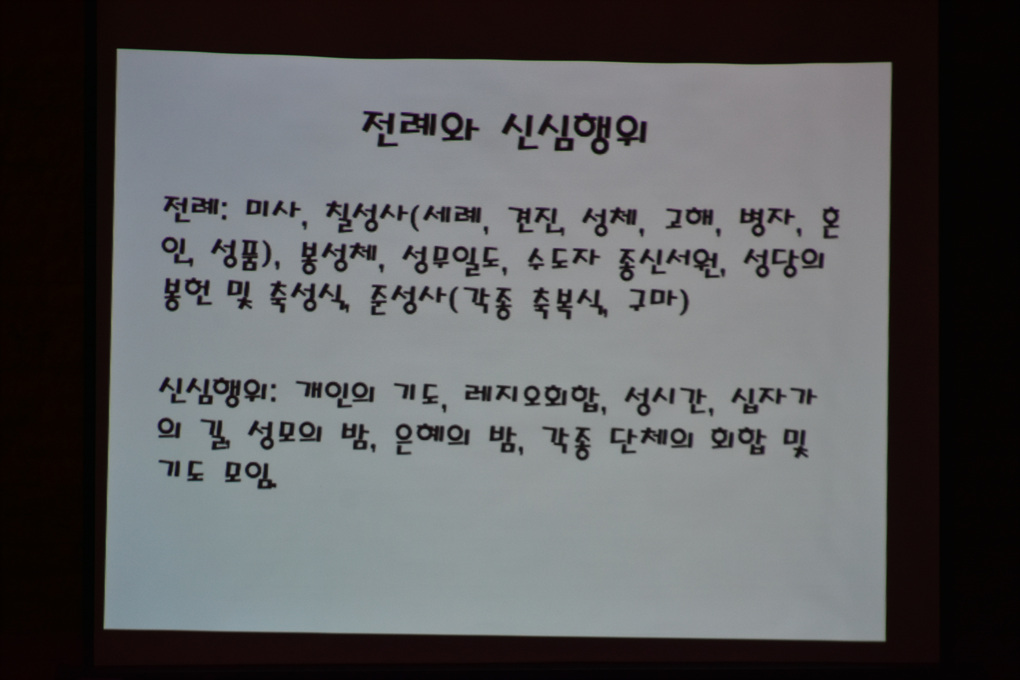 전례와 신심행위
전례: 미사, 칠성사(세례, 견진, 성체, 고해, 병자, 혼
인, 성품), 봉성체, 성무일도, 수도자 종신서원, 성당의
봉헌 및 축성식, 준성사(각종 축복식, 구마)
신심행위: 개인의 기도, 레지오회합, 성시간, 십자가
의 길, 성모의 밤, 은혜의 밤, 각종 단체의 회합 및
기도 모임.